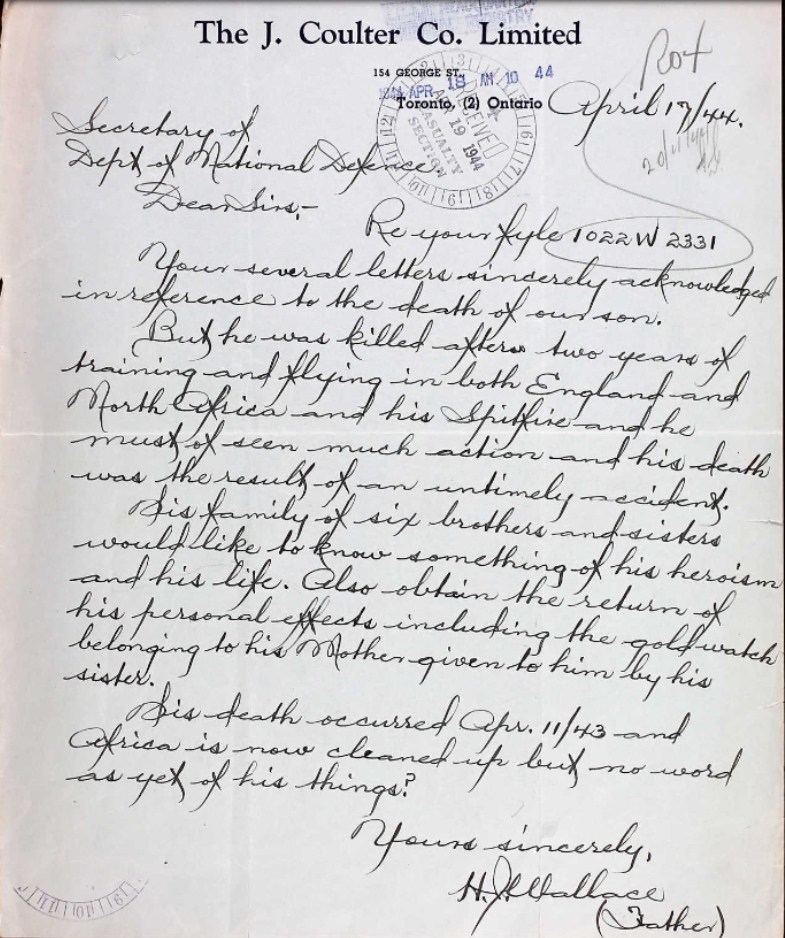 The J. Coulter Co. Limited
154 GEORGE ST.,
1944 APR 18 AM 10 44
Toronto, (2) Ontario
RECEIVED
APR 19 1944
CASUALTY
SECTION
April 17/44.
Secretary of
Dept of National Defence.
Dear Sirs,-
Re your fyle 1022 W 2331
Your several letters sincerely acknowledged
in reference to the death of our son.
But he was killed after two years of
training and flying in both England and
North Africa and his Spitfire and he
must of seen much action and his death
was the result of an untimely accident.
His family of six brothers and sisters
would like to know something of his heroism
and his life. Also obtain the return of
his personal effects including the gold watch
belonging to his Mother given to him by his
sister.
His death occurred Apr. 11/43 and
Africa is now cleaned up but no word
as yet of his things?
Yours sincerely,
H. J. Wallace
(Father)